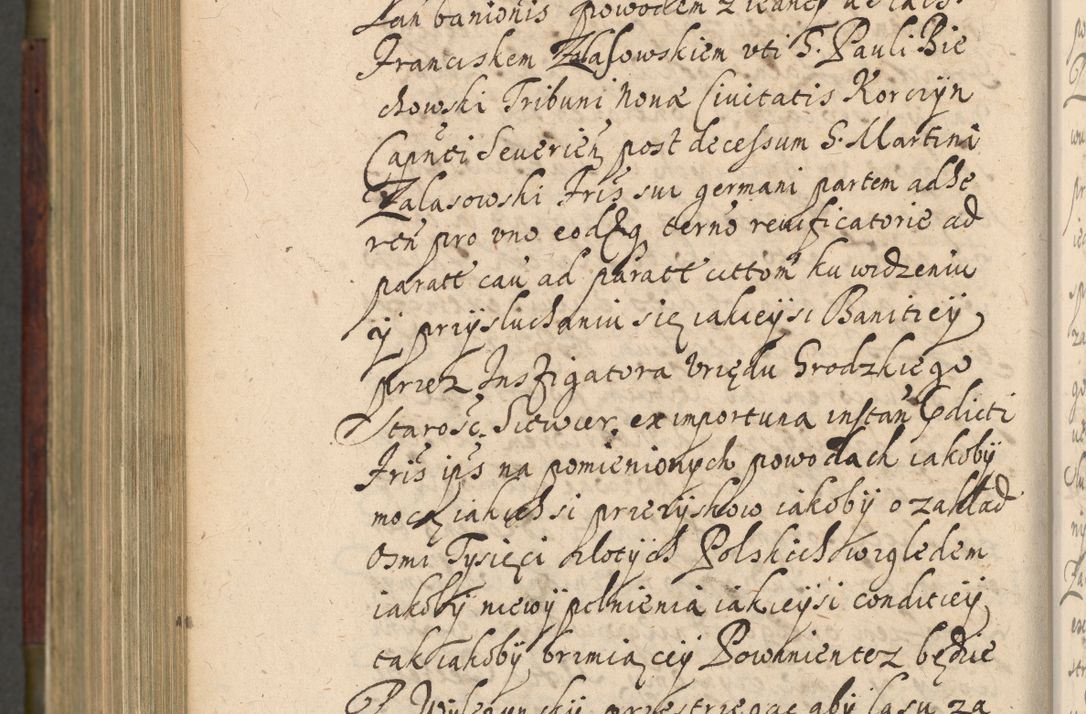 banionis powodem z iedneÿ
Franciskem Załasowskiem vti G. Pauli Bie
chowski Tribuni Nonæ Ciuitatis Korczÿn
Capnti Seuerien post decessum G. Martini
Zalasowski Fris sui germani partem adhe
ren pro vno eodq terno reuificatorie ad
paratt cau ad paratt cittom ku widzeniu
ÿ przÿsluchaniu się iakieÿsi Banitieÿ
przez Instigatora Vrzędu Grodzkiego
Starosc. ex importuna instan Edicti
Fris ips na pomienionych powodach iakobÿ
mocą iakichsi przezÿskow iakobÿ o zakład
Osmi Tysięci złotÿch Polskich względem
iakobÿ niewÿpełnienia iakieÿsi conditieÿ
tak iakobÿ brzmiąceÿ Powinien tez będzie
P. przestrzegac abÿ lasu za